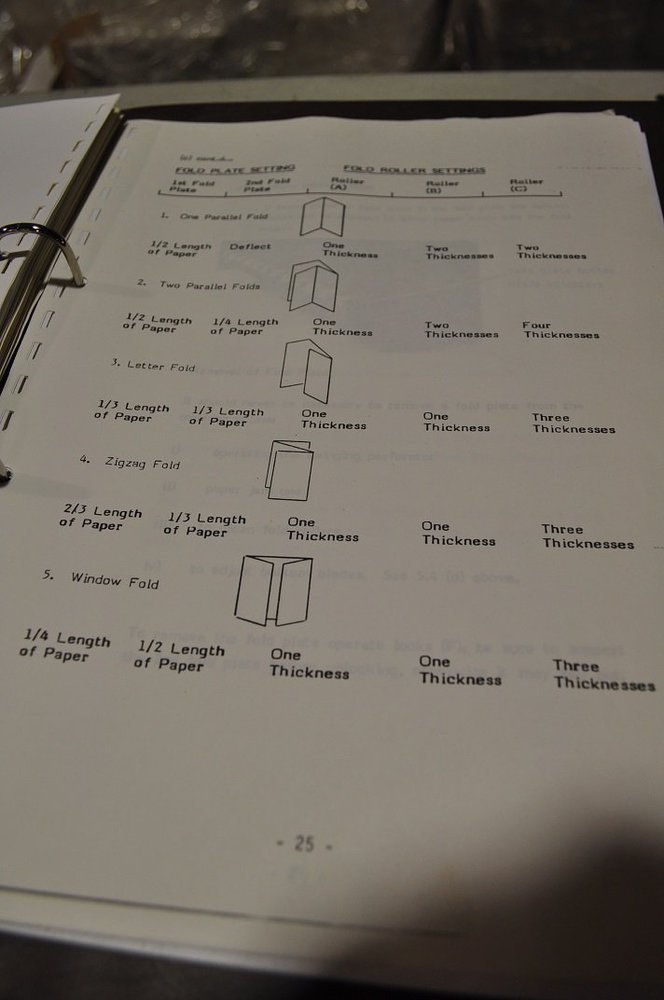 (c) cont.d...
FOLD PLATE SETTING FOLD ROLLER SETTINGS
1st Fold 2nd Fold Roller Roller Roller
Plate Plate (A) (B) (C)
1. One Parallel Fold
1/2 Length Deflect One Two Two
of Paper Thickness Thicknesses Thicknesses
2. Two Parallel Folds
1/2 Length 1/4 Length One Two Four
of Paper of Paper Thickness Thicknesses Thicknesses
3. Letter Fold
1/3 Length 1/3 Length One One Three
of Paper of Paper Thickness Thickness Thicknesses
4. Zigzag Fold
2/3 Length 1/3 Length One One Three
of Paper of Paper Thickness Thickness Thicknesses
5. Window Fold
1/4 Length 1/2 Length One One Three
of Paper of Paper Thickness Thickness Thicknesses
- 25 -